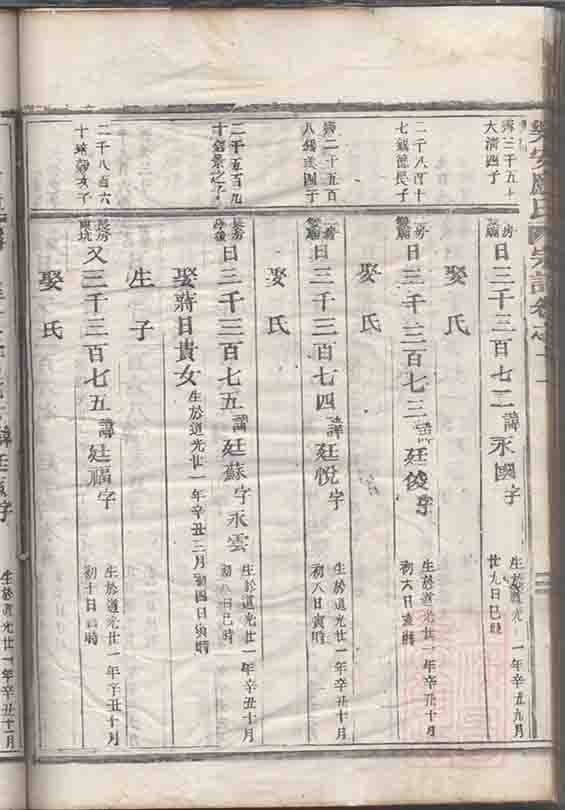 樂安盧氏
宗譜卷之二
大演四子
日三千三百七二諱永國字
生於道光 一年辛丑九月
廿九日巳時
娶氏
二千八百十
七錫德長子
日三千三百七三諱廷俊字
生於道光廿一年辛丑十月
初六日寅時
娶氏
二千五百
八錫 國子
日三千三百七四諱廷悅字
生於道光廿一年辛丑十月
初八日寅時
娶氏
二千五百九
十錫景之子
長房
日三千三百七五諱廷蘇字永雲
生於道光廿一年辛丑十月
初八日巳時
娶蔣日貴女
生於道光廿一年辛丑三月
初四日寅時
生子
二千八百六
長房
又三千三百七五諱廷福字
生於道光廿一年辛丑十月
初十日 時
娶氏
生於道光廿一年辛丑十一月